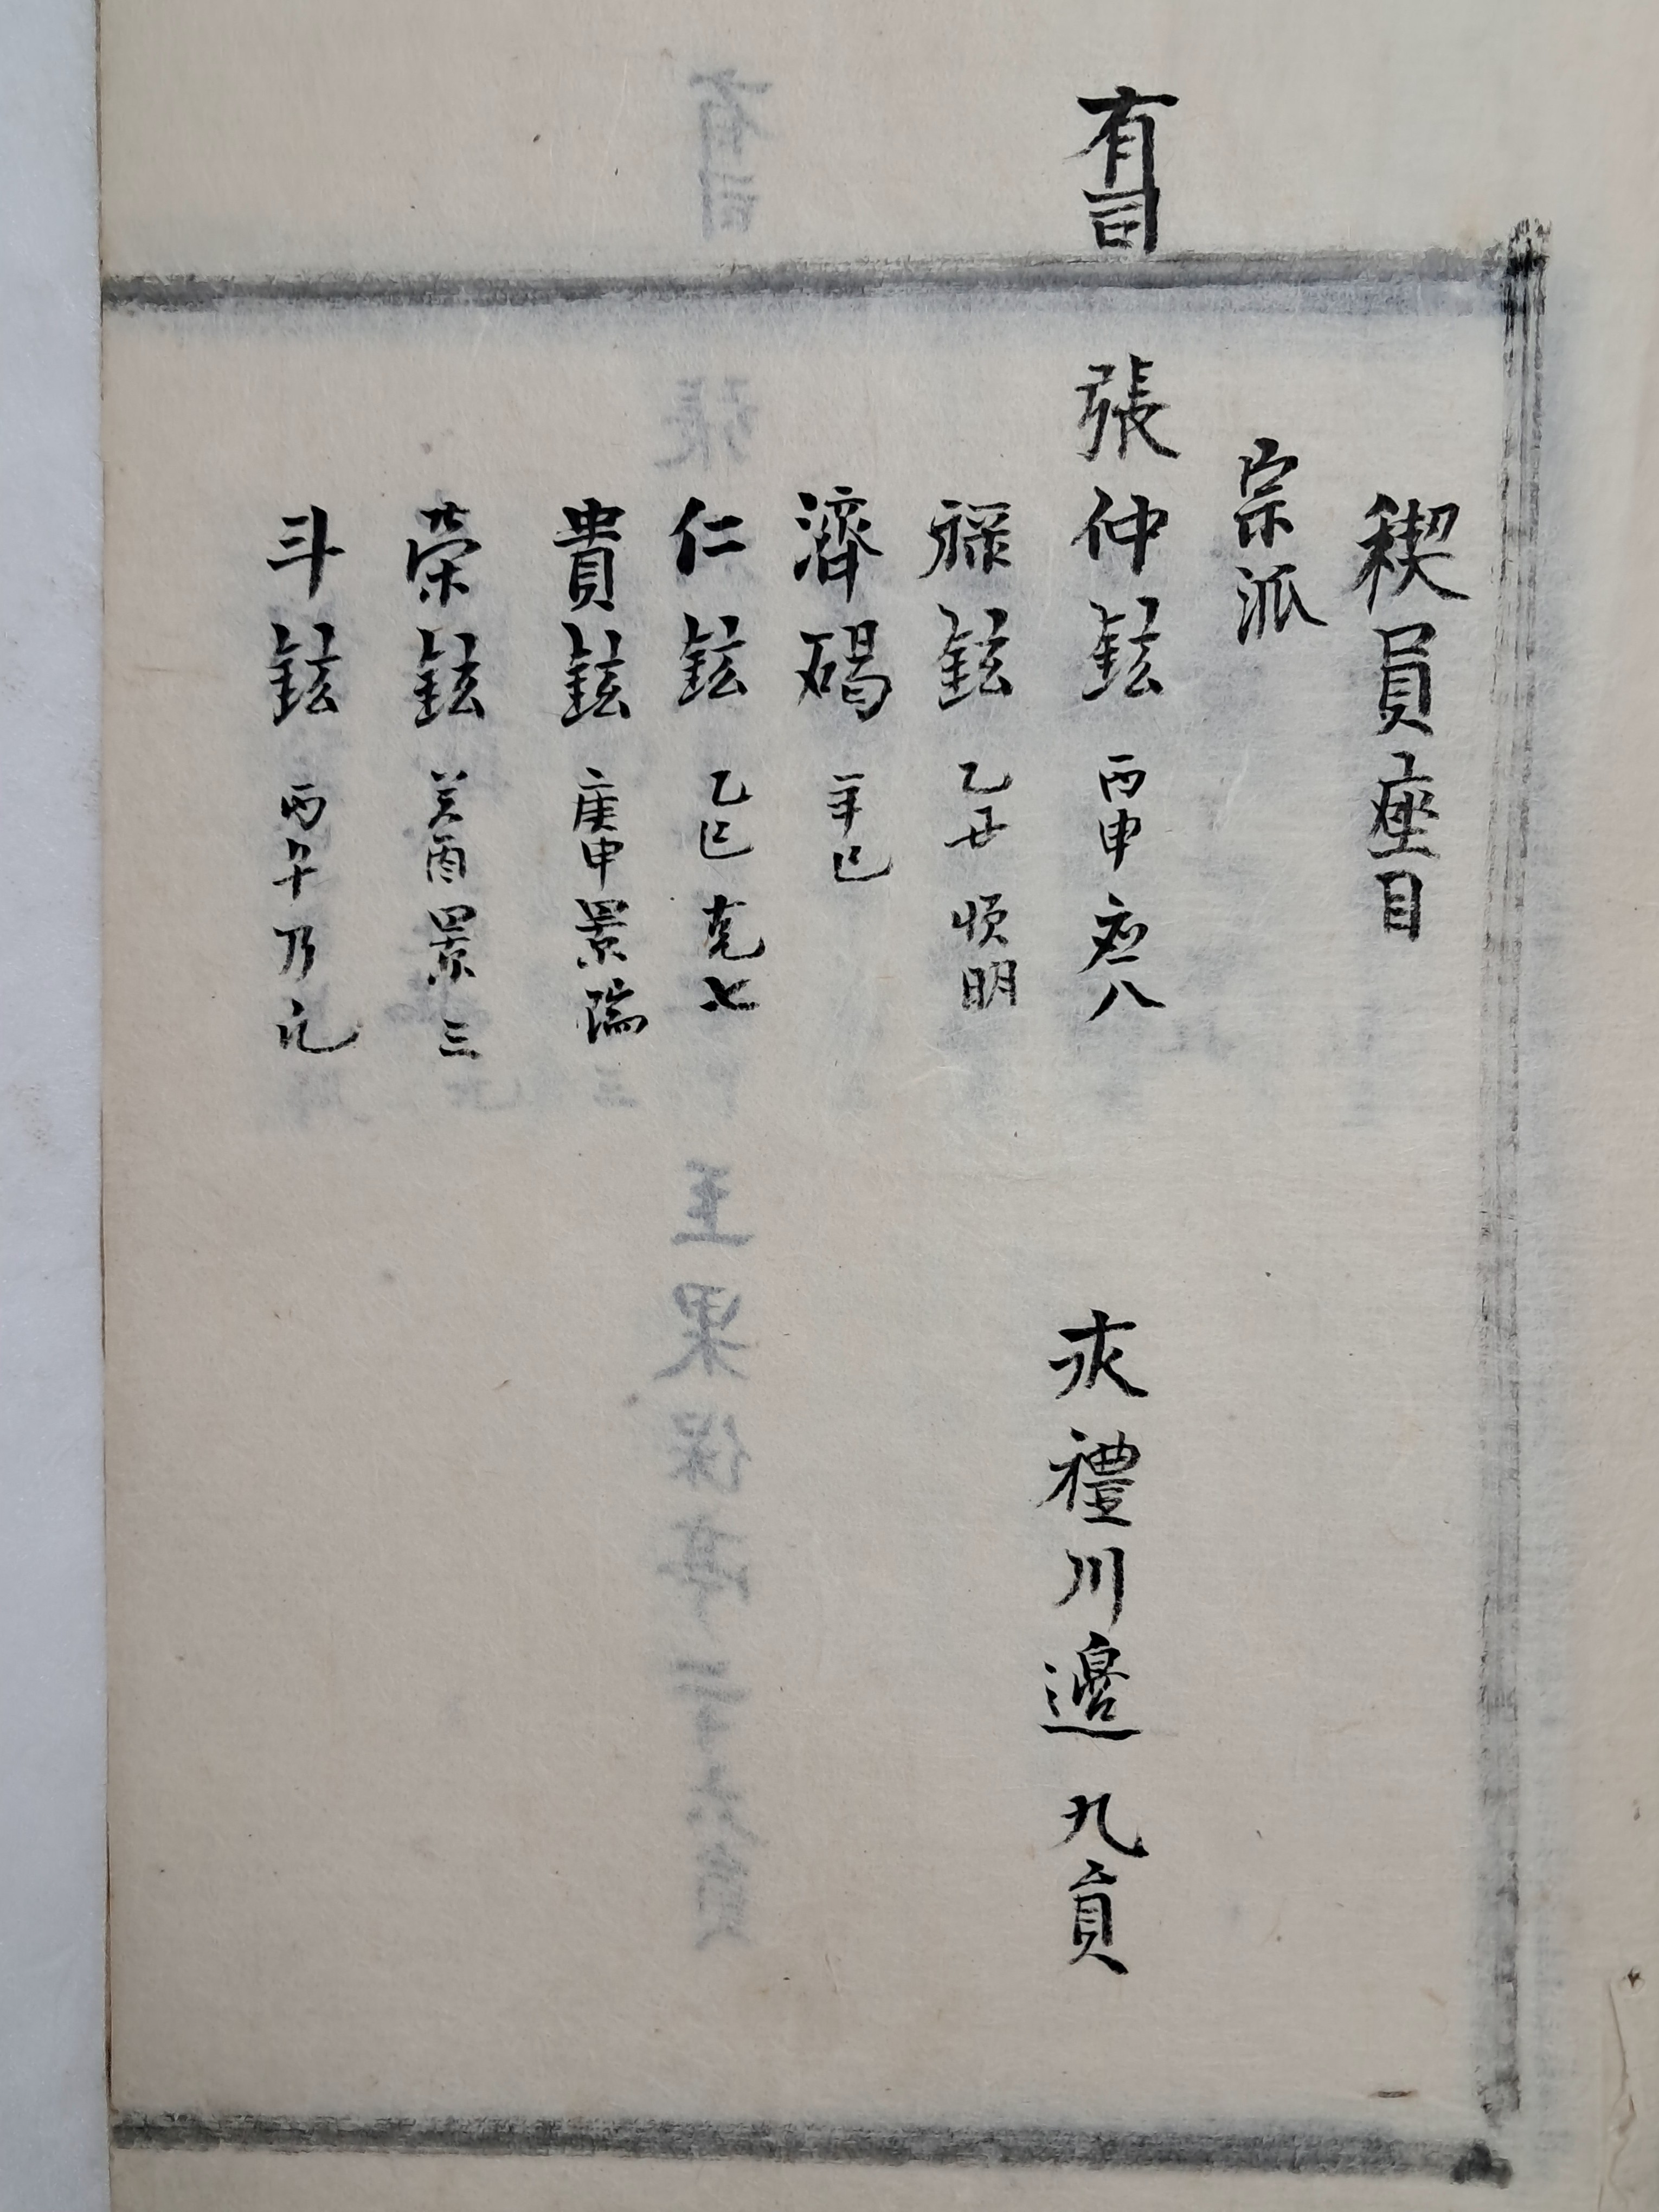 稧員座目
宗派
有司 張仲鉉 丙申 應八 求禮川邊 九員
祿鉉 乙丑 順明
濟碣 辛巳
仁鉉 乙巳 克七
貴鉉 庚申 景瑞
榮鉉 癸酉 景三
斗鉉 丙午 乃元